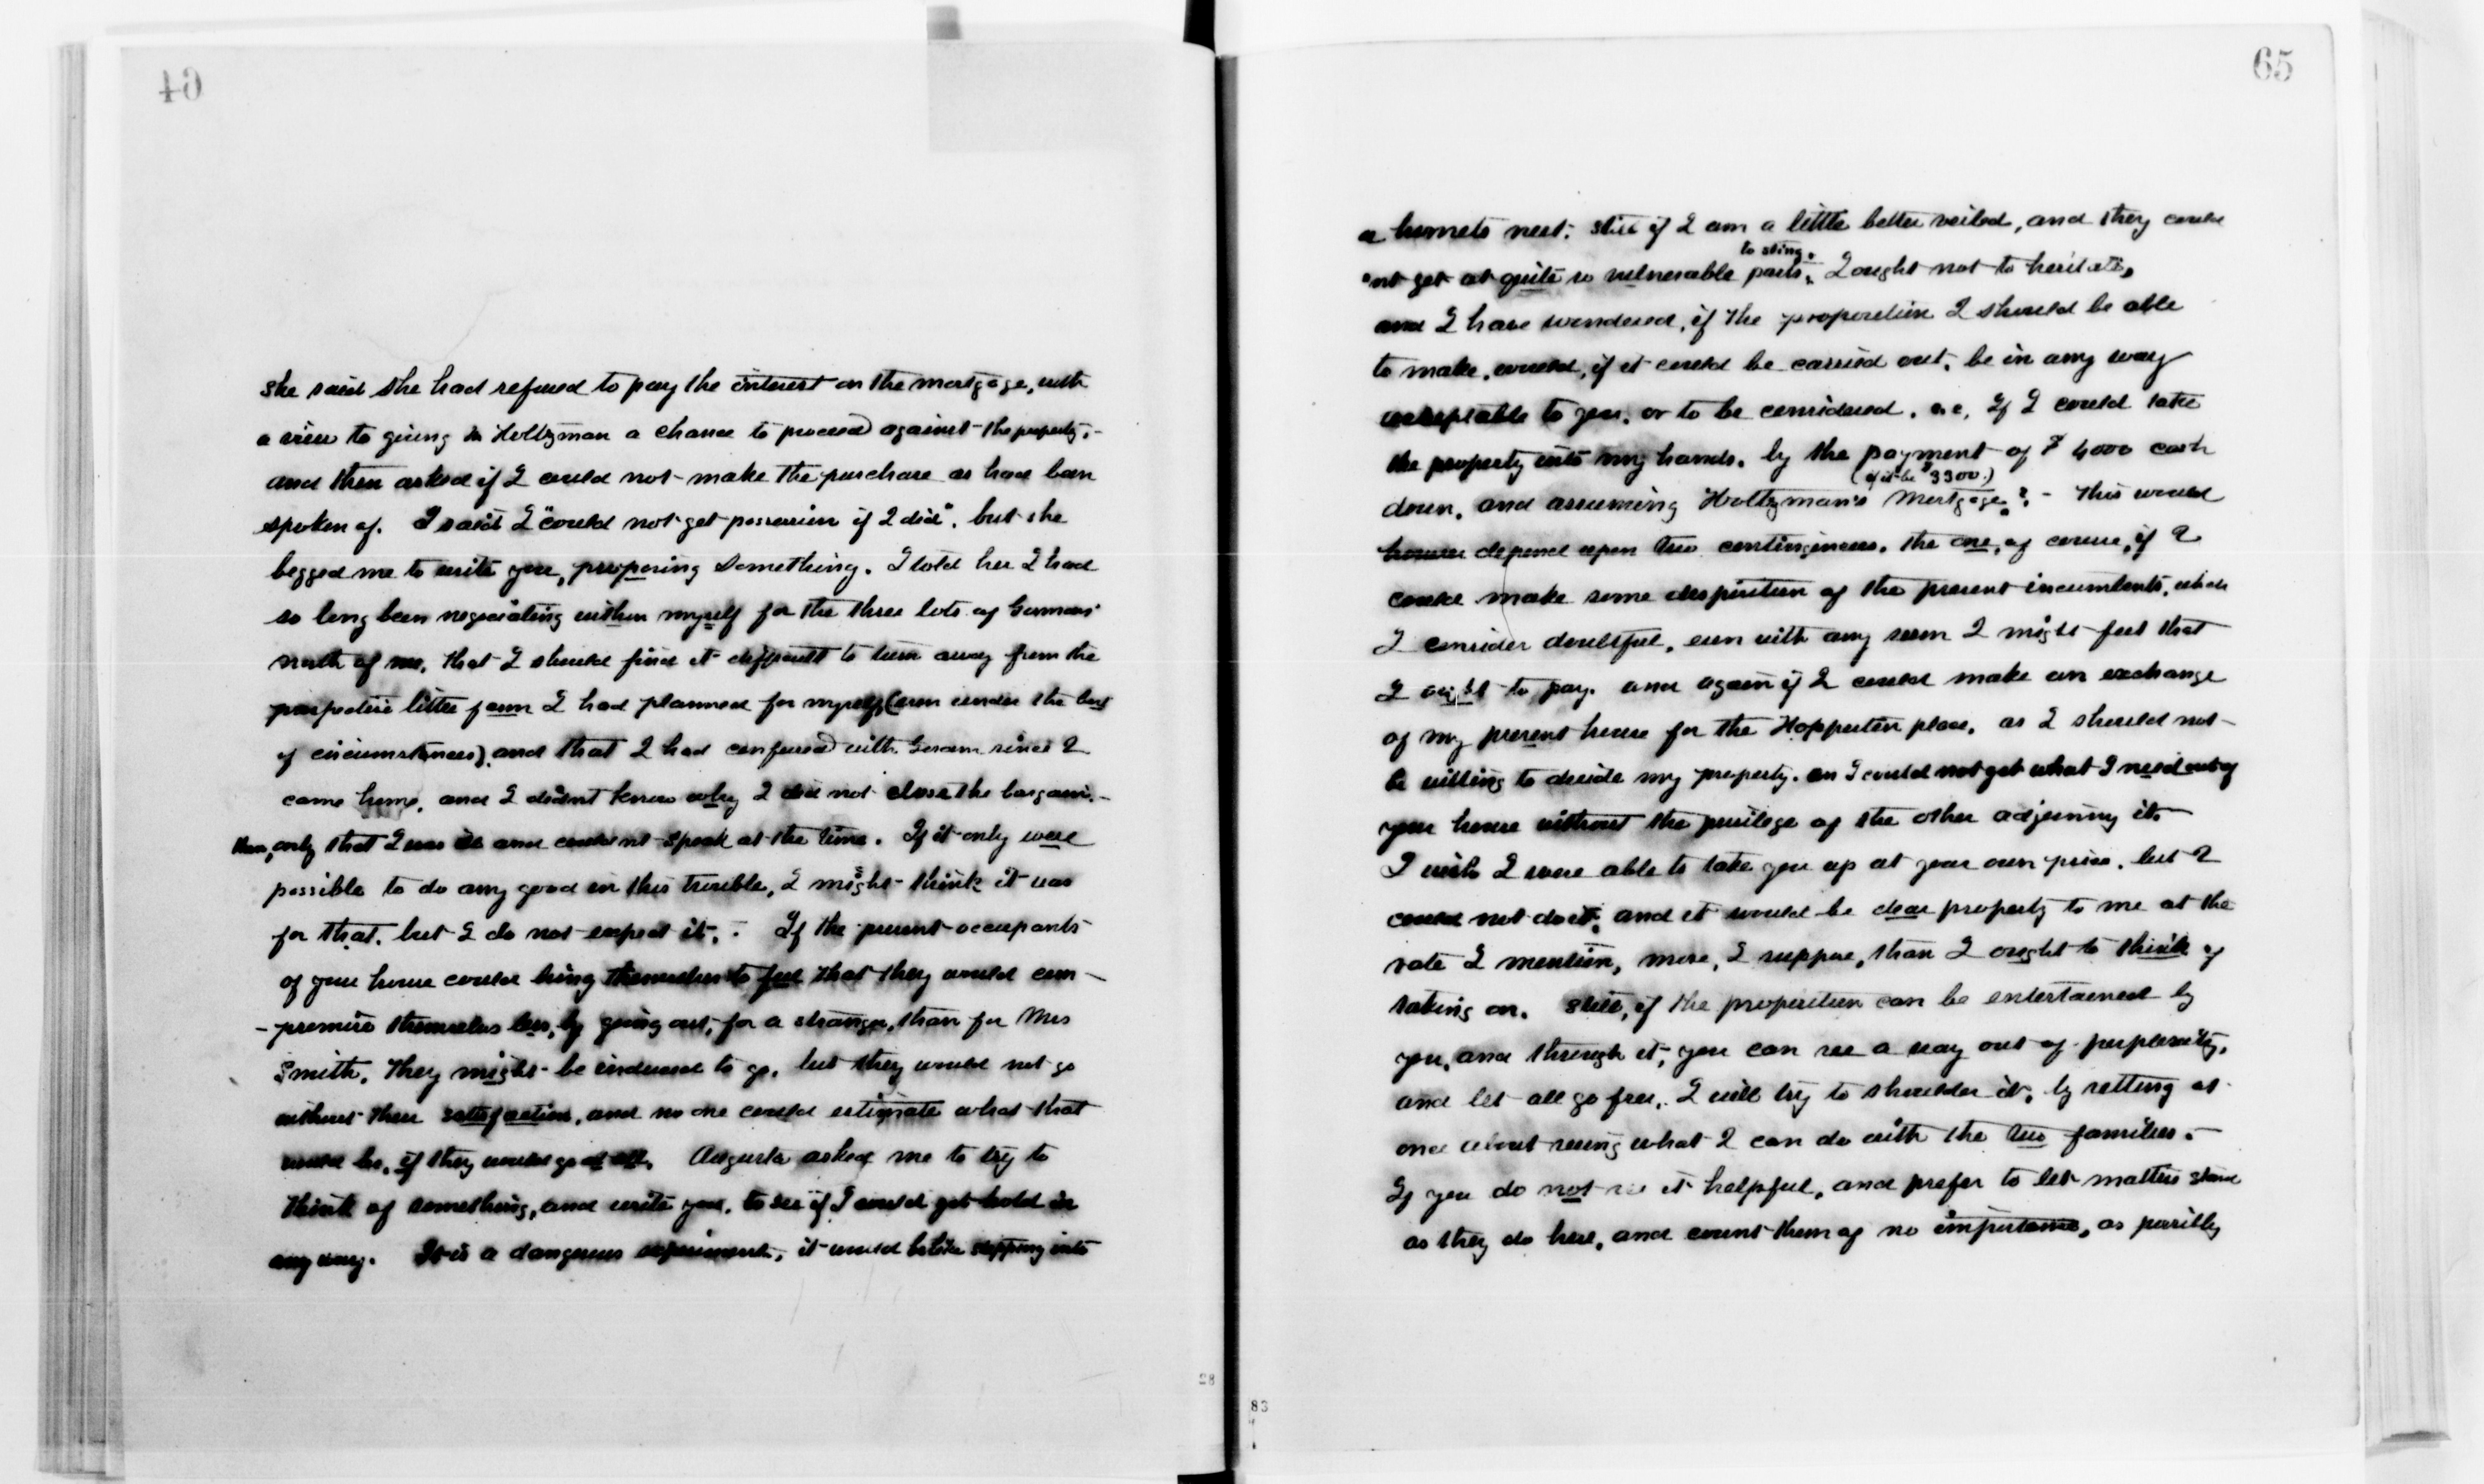 40
she said she had refused to pay the interest on the mortgage, with
a view to giving Holtzman a chance to proceed against the property,-
and then asked if I could not make the purchase as had been
spoken of. I said I "could not get possession if I did". but she
begged me to write you, proposing something. I told her I had
so long been negociating within myself for the three lots of Gormans
north of me, that I should find it difficult to turn away from the
little farm I had planned for myself, (even under the best
of circumstances), and that I had confered with Gorman since I
came home, and I didn't know why I did not close the bargain,-
then, only that I was ill and could nt speak at the time. If it only were
possible to do any good in this trouble, I might think it was
for that, but I do not expect it. - If the present occupants
of your house could bring themselves to feel that they would com-
-promise themselves less, by going out, for a stranger, than for Mrs
Smith, they might be induced to go, but they would not go
without their satisfaction, and no one could estimate what that
would be, if they would go at all. Augusta asked me to try to
think of something, and write you, to see if I could get hold in
any way. It is a dangerous experiment, it would be like stepping into
28
65
a hornets nest: still if I am a little better veiled, and they could
to sting.
nt get at quite so vulnerable parts, I ought not to hesitate,
and I have wondered, if the proposition I should be able
to make, would, if it could be carried out, be in any way
acceptable to you, or to be considered, i.e, If I could take
the property into my hands, by the payment of $ 4000 cash
(if it be $3300.)
down, and assuming Holtzman's Mortgage? - This would
however depend upon two contingences, the one, of course, if I
could make some disposition of the present incumbents, which
I consider doubtful, even with any sum I might feel that
I ought to pay. and again if I could make an exchange
of my present house for the place, as I should not
be willing to divide my property, I could not get what I need out of
your house without the privilege of the other adjoining it.
I wish I were able to take you up at your own price, but I
could not do it, and it would be dear property to me at the
rate I mention, more, I suppose, than I ought to think of
taking on. Still, if the proposition can be entertained by
you, and through it, you can see a way out of perplexity,
and let all go free, I will try to shoulder it, by setting at
once about seeing what I can do with the two families.-
If you do not see it helpful, and prefer to let matters stand
as they do here, and count them of no importance, as possibly
83